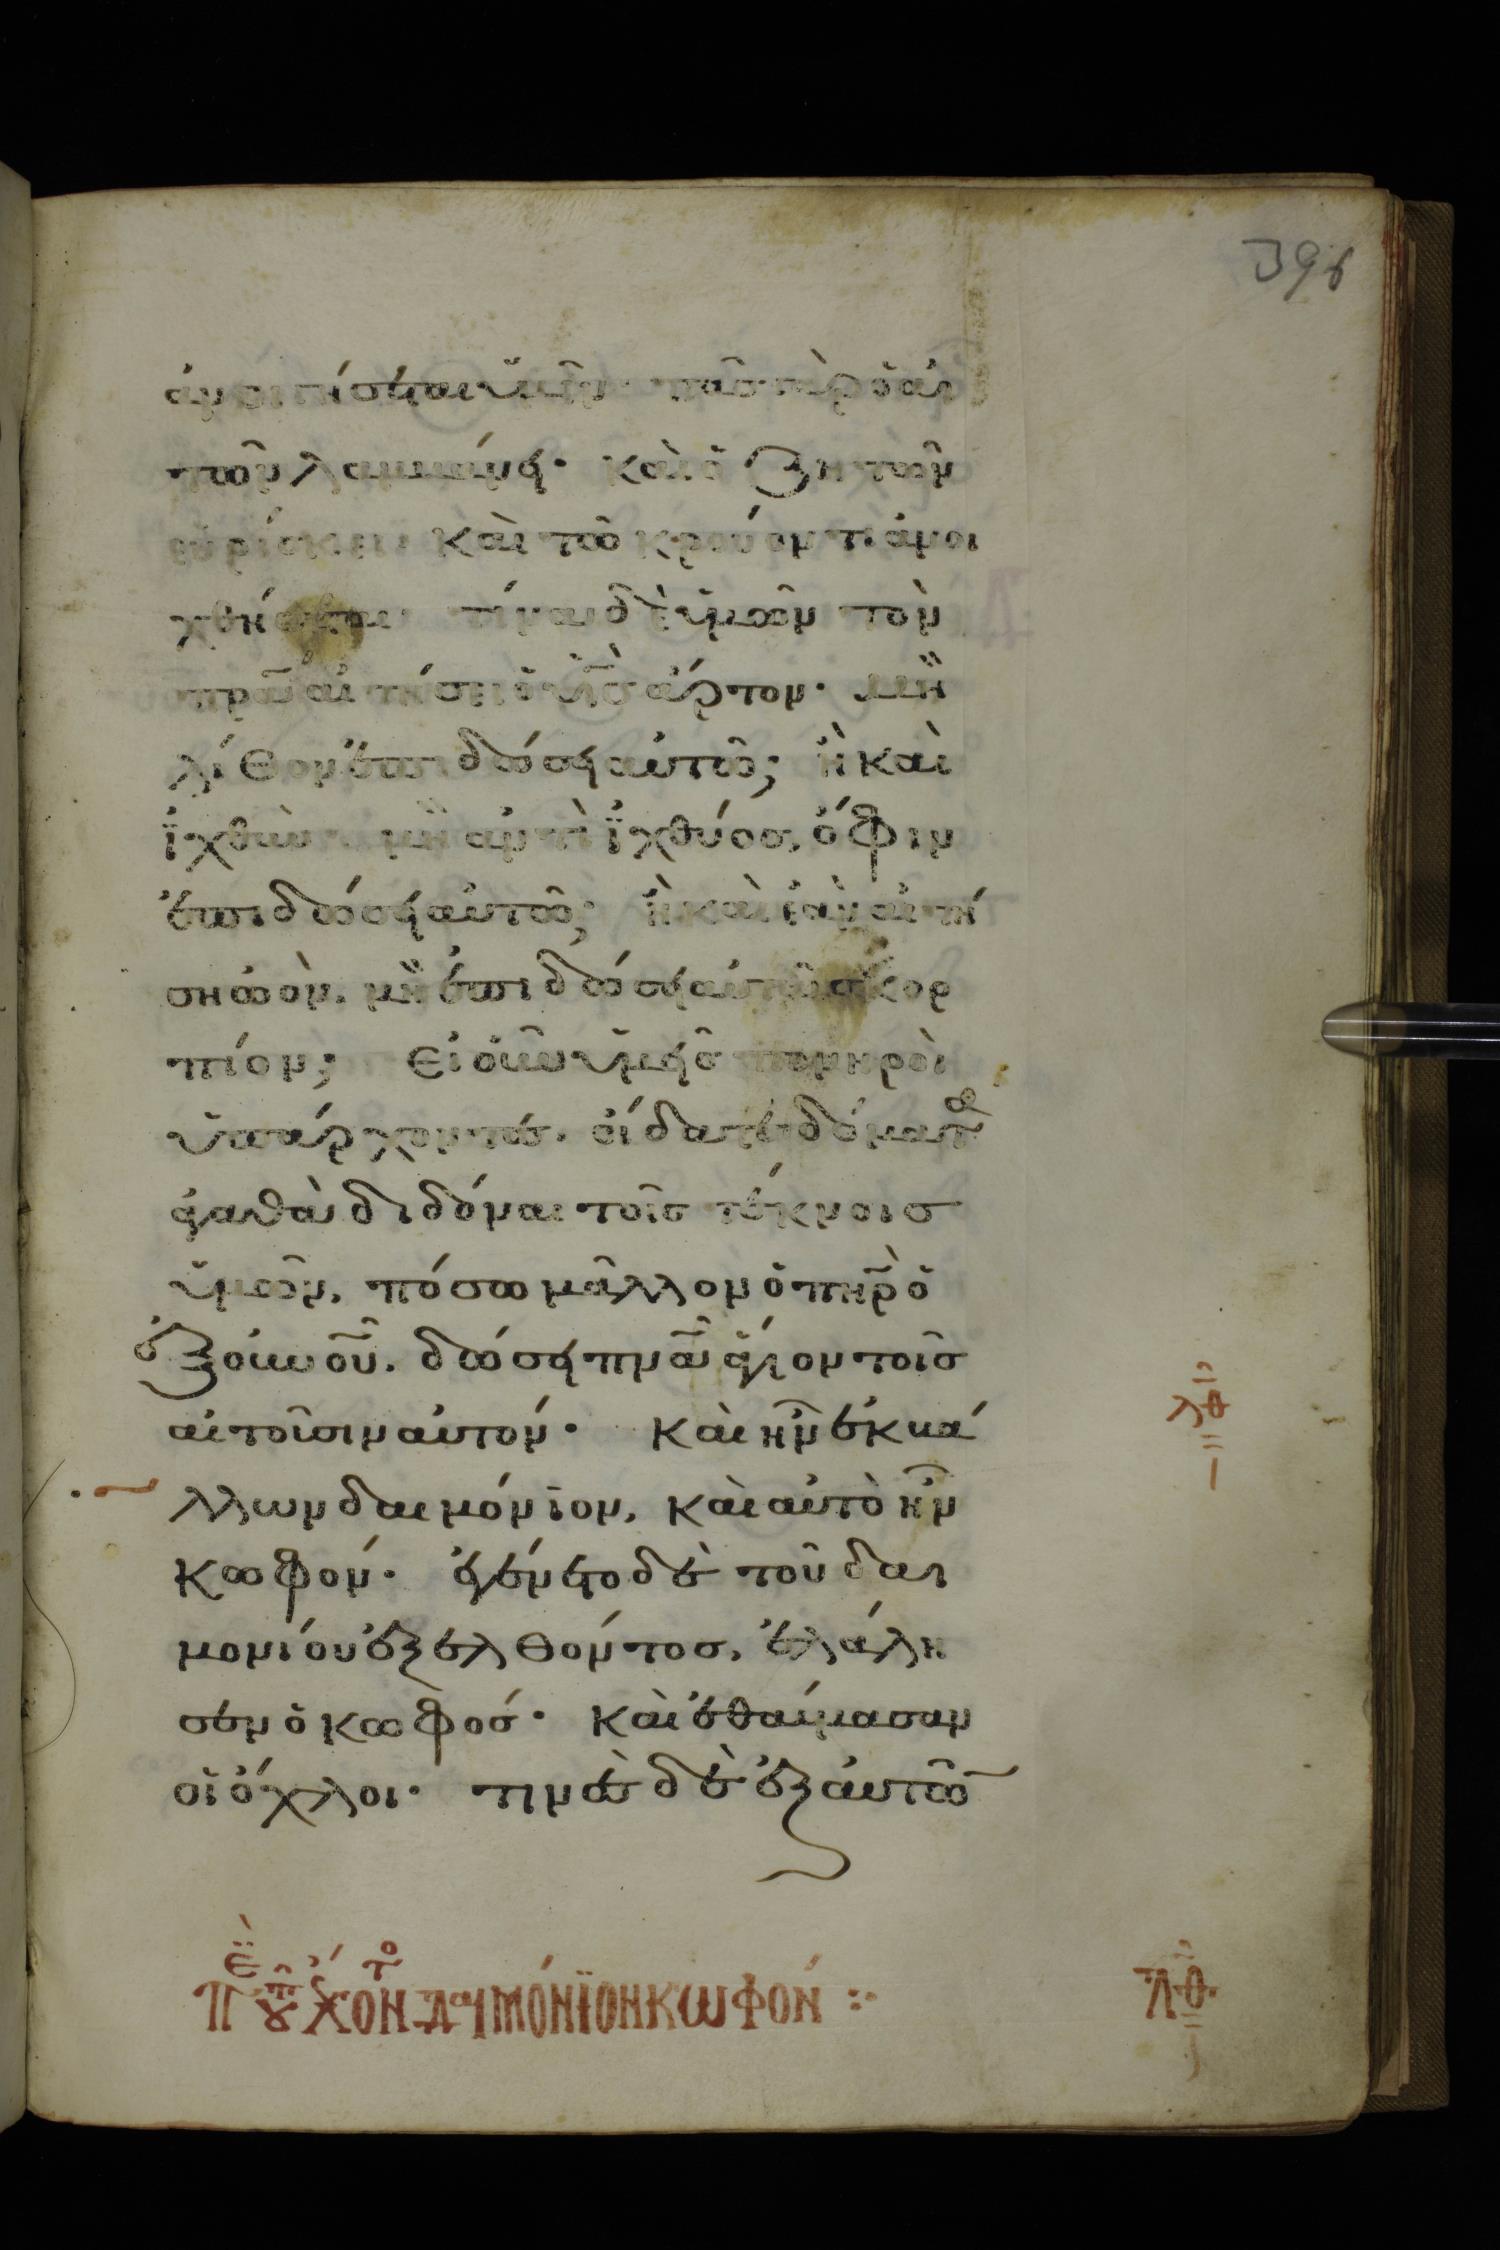 396
ἀνοιγήσεται ὑμῖν· πᾶς γὰρ ὁ αἰ
τῶν λαμβάνει· καὶ ὁ ζητῶν
εὑρίσκει· καὶ τῶ κρούοντι ἀνοι
χθήσεται· τίνα δὲ ὑμῶν τὸν
πρ̅α αἰτήσει ὁ υἱὸς ἄρτον· μὴ
λίθον ἐπιδώσει αὐτῶ; ἢ καὶ
ἰχθὺν μὴ ἀντὶ ἰχθύος, ὄφιν
ἐπιδώσει αὐτῶ; ἢ καὶ ἐὰν αἰτή
ση ὠὸν, μὴ ἐπιδώσει αὐτῶ σκορ
πίον; Εἰ οὖν ὑμεῖς πονηροὶ
ὑπάρχοντες, οἴδατε δόματα
ἀγαθὰ διδόναι τοῖς τέκνοις
ὑμῶν, πόσω μᾶλλον ὁ πη̅ρ ὁ
ἐξ οὐν̅οῦ, δώσει πν̅α ἅγιον τοῖς
αἰτοῦσιν αὐτόν· καὶ ἦν ἐκβά
λλων δαιμόνιον, καὶ αὐτὸ ἦν
κωφόν· ἐγένετο δὲ τοῦ δαι
μονίου ἐξελθόντος, ἐλάλη
σεν ὁ κωφός· καὶ ἐθαύμασαν
οἱ ὄχλοι· τινὲς δὲ ἐξ αὐτῶ
ΔΑΙΜΌΝΙΟΝ ΚΩΦΟΝ :·
ΛΘ